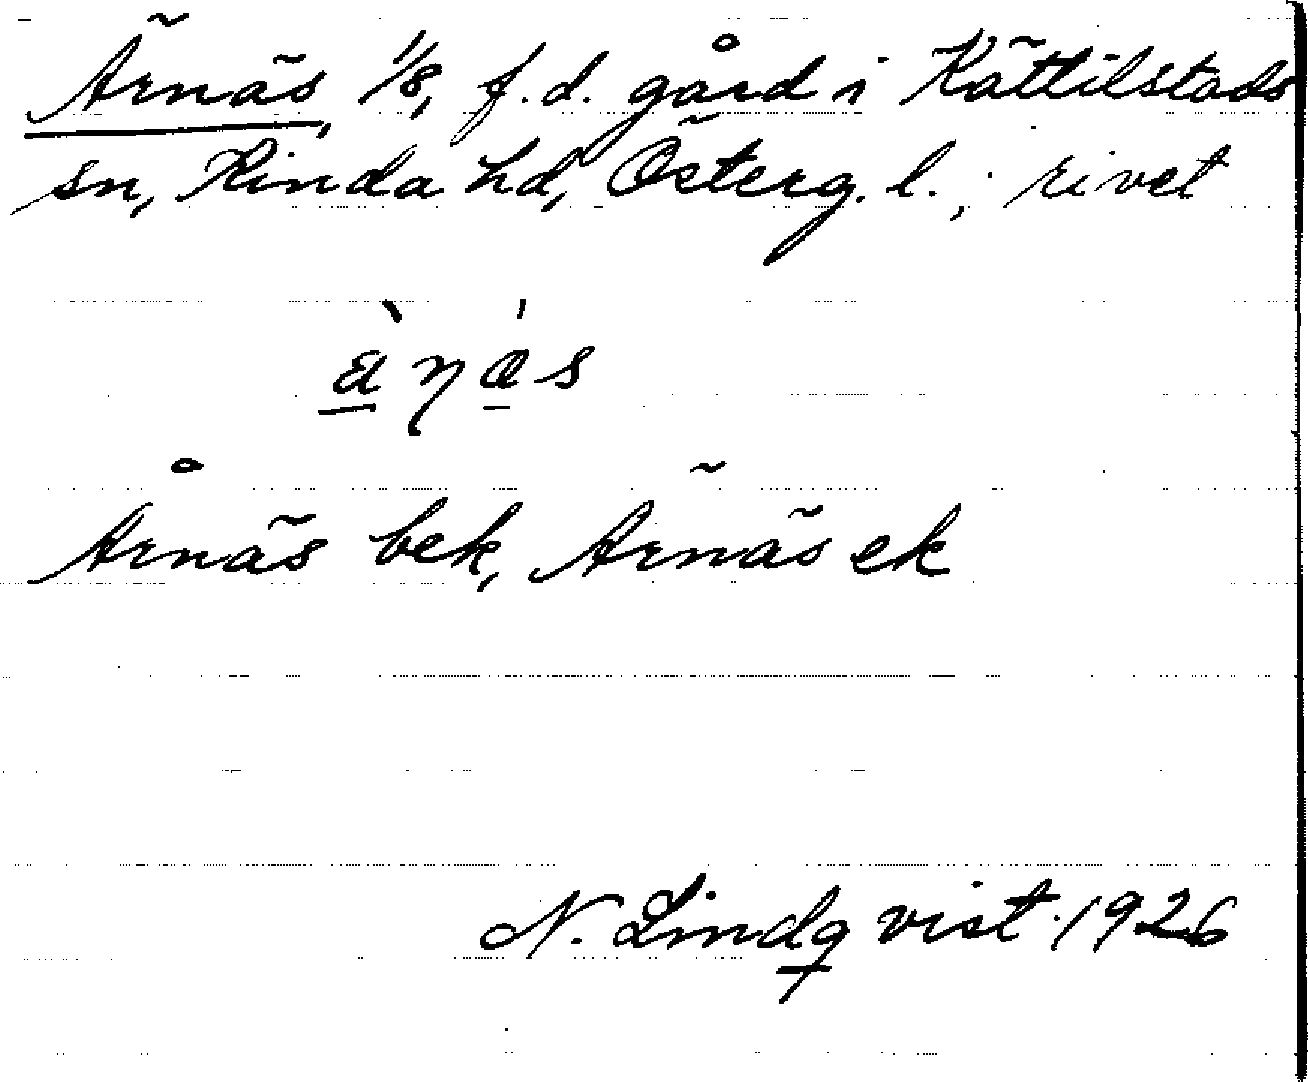 Ärnäs, 1/8, f.d. gård i Kättilstads
sn, Kinda hd, Österg. l.; rivet
Årnäs bek, Ärnäs ek
N. Lindqvist 1926